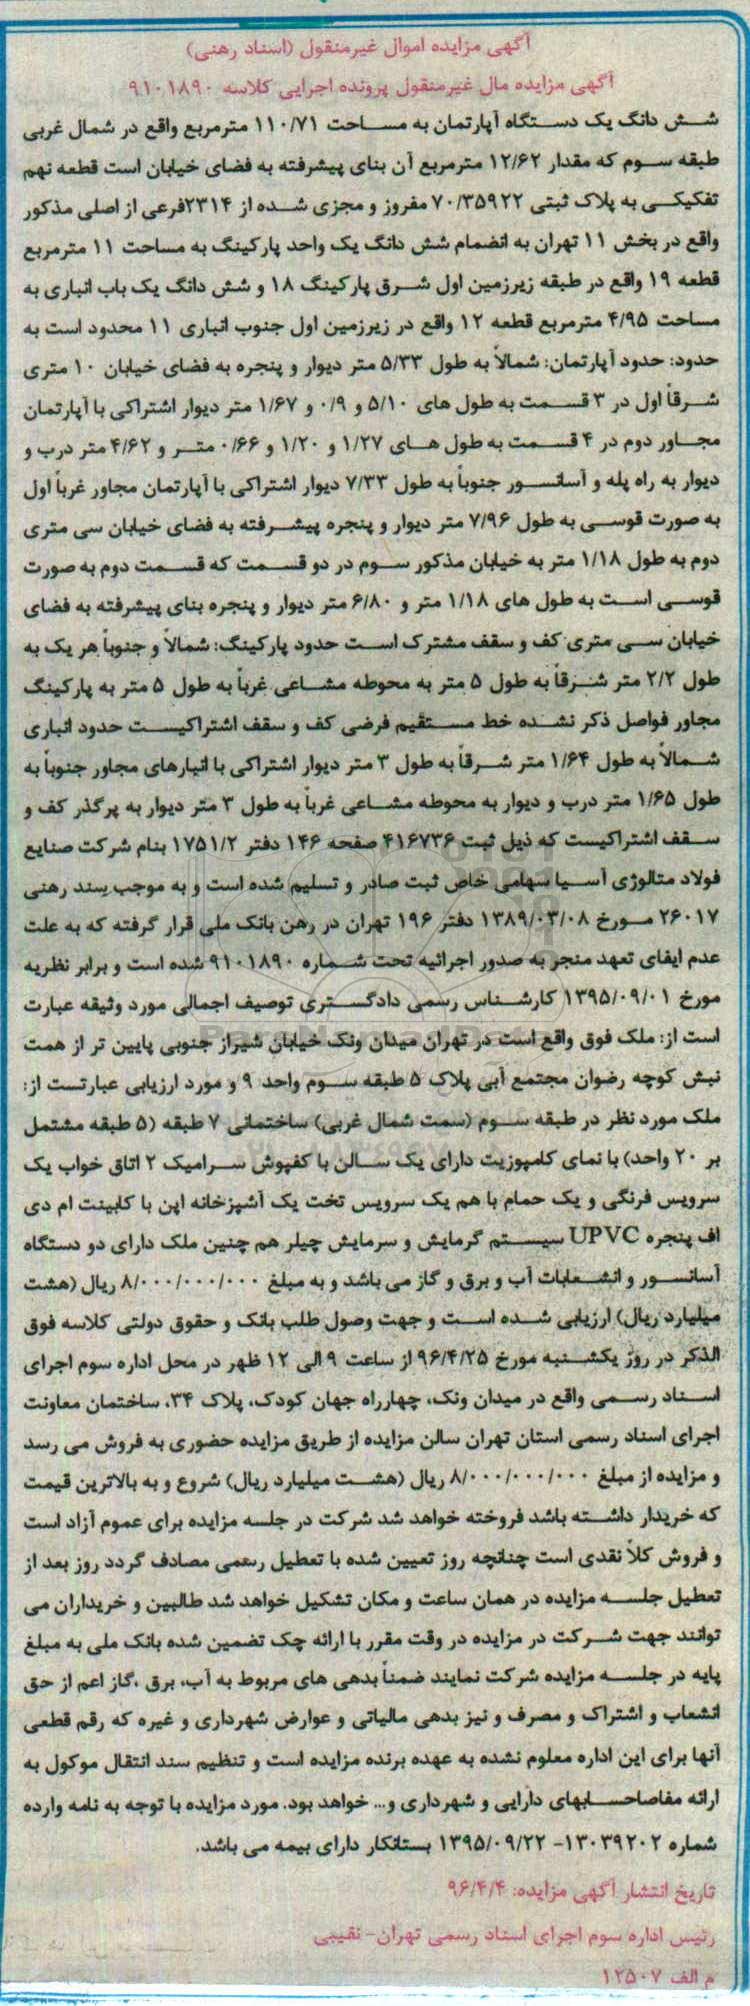 آگهی مزایده اموال غیرمنقول (اسناد رهنی)
آگهی مزایده مال غیرمنقول پرونده اجرایی کلاسه ۹۱۰۱۸۹۰
شش دانگ یک دستگاه آپارتمان به مساحت ۱۱۰/۷۱ مترمربع واقع در شمال غربی
طبقه سوم که مقدار ۱۲/۶۲ مترمربع آن بنای پیشرفته به فضای خیابان است قطعه نهم
تفکیکی به پلاک ثبتی ۷۰/۳۵۹۲۲ مفروز و مجزی شده از ۲۳۱۴فرعی از اصلی مذکور
واقع در بخش ۱۱ تهران به انضمام شش دانگ یک واحد پارکینگ به مساحت ۱۱ مترمربع
قطعه ۱۹ واقع در طبقه زیرزمین اول شرق پارکینگ ۱۸ و شش دانگ یک باب انباری به
مساحت ۴/۹۵ مترمربع قطعه ۱۲ واقع در زیرزمین اول جنوب انباری ۱۱ محدود است به
حدود: حدود آپارتمان: شمالاً به طول ۵/۳۳ متر دیوار و پنجره به فضای خیابان ۱۰ متری
شرقاً اول در ۳ قسمت به طول های ۵/۱۰ و ۰/۹ و ۱/۶۷ متر دیوار اشتراکی با آپارتمان
مجاور دوم در ۴ قسمت به طول های ۱/۲۷ و ۱/۲۰ و ۰/۶۶ متر و ۴/۶۲ متر درب و
دیوار به راه پله و آسانسور جنوباً به طول ۷/۳۳ دیوار اشتراکی با آپارتمان مجاور غرباً اول
به صورت قوسی به طول ۷/۹۶ متر دیوار و پنجره پیشرفته به فضای خیابان سی متری
دوم به طول ۱/۱۸ متر به خیابان مذکور سوم در دو قسمت که قسمت دوم به صورت
قوسی است به طول های ۱/۱۸ متر و ۶/۸۰ متر دیوار و پنجره بنای پیشرفته به فضای
خیابان سی متری کف و سقف مشترک است حدود پارکینگ: شمالاً و جنوباً هر یک به
طول ۲/۲ متر شرقاً به طول ۵ متر به محوطه مشاعی غرباً به طول ۵ متر به پارکینگ
مجاور فواصل ذکر نشده خط مستقیم فرضی کف و سقف اشتراکیست حدود انباری
شمالاً به طول ۱/۶۴ متر شرقاً به طول ۳ متر دیوار اشتراکی با انبارهای مجاور جنوباً به
طول ۱/۶۵ متر درب و دیوار به محوطه مشاعی غرباً به طول ۳ متر دیوار به پرگذر کف و
سقف اشتراکیست که ذیل ثبت ۴۱۶۷۳۶ صفحه ۱۴۶ دفتر ۱۷۵۱/۲ بنام شرکت صنایع
فولاد متالوژی آسیا سهامی خاص ثبت صادر و تسلیم شده است و به موجب سند رهنی
۲۶۰۱۷ مورخ ۱۳۸۹/۰۳/۰۸ دفتر ۱۹۶ تهران در رهن بانک ملی قرار گرفته که به علت
عدم ایفای تعهد منجر به صدور اجرائیه تحت شماره ۹۱۰۱۸۹۰ شده است و برابر نظریه
مورخ ۱۳۹۵/۰۹/۰۱ کارشناس رسمی دادگستری توصیف اجمالی مورد وثیقه عبارت
است از: ملک فوق واقع است در تهران میدان ونک خیابان شیراز جنوبی پایین تر از همت
نبش کوچه رضوان مجتمع آبی پلاک ۵ طبقه سوم واحد ۹ و مورد ارزیابی عبارتست از:
ملک مورد نظر در طبقه سوم (سمت شمال غربی) ساختمانی ۷ طبقه (۵ طبقه مشتمل
بر ۲۰ واحد) با نمای کامپوزیت دارای یک سالن با کفپوش سرامیک ۲ اتاق خواب یک
سرویس فرنگی و یک حمام با هم یک سرویس تخت یک آشپزخانه اپن با کابینت ام دی
اف پنجره UPVC سیستم گرمایش و سرمایش چیلر هم چنین ملک دارای دو دستگاه
آسانسور و انشعابات آب و برق و گاز می باشد و به مبلغ ۸/۰۰۰/۰۰۰/۰۰۰ ریال (هشت
میلیارد ریال) ارزیابی شده است و جهت وصول طلب بانک و حقوق دولتی کلاسه فوق
الذکر در روز یکشنبه مورخ ۹۶/۴/۲۵ از ساعت ۹ الی ۱۲ ظهر در محل اداره سوم اجرای
اسناد رسمی واقع در میدان ونک، چهارراه جهان کودک، پلاک ۳۴، ساختمان معاونت
اجرای اسناد رسمی استان تهران سالن مزایده از طریق مزایده حضوری به فروش می رسد
و مزایده از مبلغ ۸/۰۰۰/۰۰۰/۰۰۰ ریال (هشت میلیارد ریال) شروع و به بالاترین قیمت
که خریدار داشته باشد فروخته خواهد شد شرکت در جلسه مزایده برای عموم آزاد است
و فروش کلاً نقدی است چنانچه روز تعیین شده با تعطیل رسمی مصادف گردد روز بعد از
تعطیل جلسه مزایده در همان ساعت و مکان تشکیل خواهد شد طالبین و خریداران می
توانند جهت شرکت در مزایده در وقت مقرر با ارائه چک تضمین شده بانک ملی به مبلغ
پایه در جلسه مزایده شرکت نمایند ضمناً بدهی های مربوط به آب، برق ،گاز اعم از حق
انشعاب و اشتراک و مصرف و نیز بدهی مالیاتی و عوارض شهرداری و غیره که رقم قطعی
آنها برای این اداره معلوم نشده به عهده برنده مزایده است و تنظیم سند انتقال موکول به
ارائه مفاصاحسابهای دارایی و شهرداری و... خواهد بود. مورد مزایده با توجه به نامه وارده
شماره ۱۳۰۳۹۲۰۲- ۱۳۹۵/۰۹/۲۲ بستانکار دارای بیمه می باشد.
تاریخ انتشار آگهی مزایده: ۹۶/۴/۴
رئیس اداره سوم اجرای اسناد رسمی تهران- نقیبی
م الف ۱۲۵۰۷